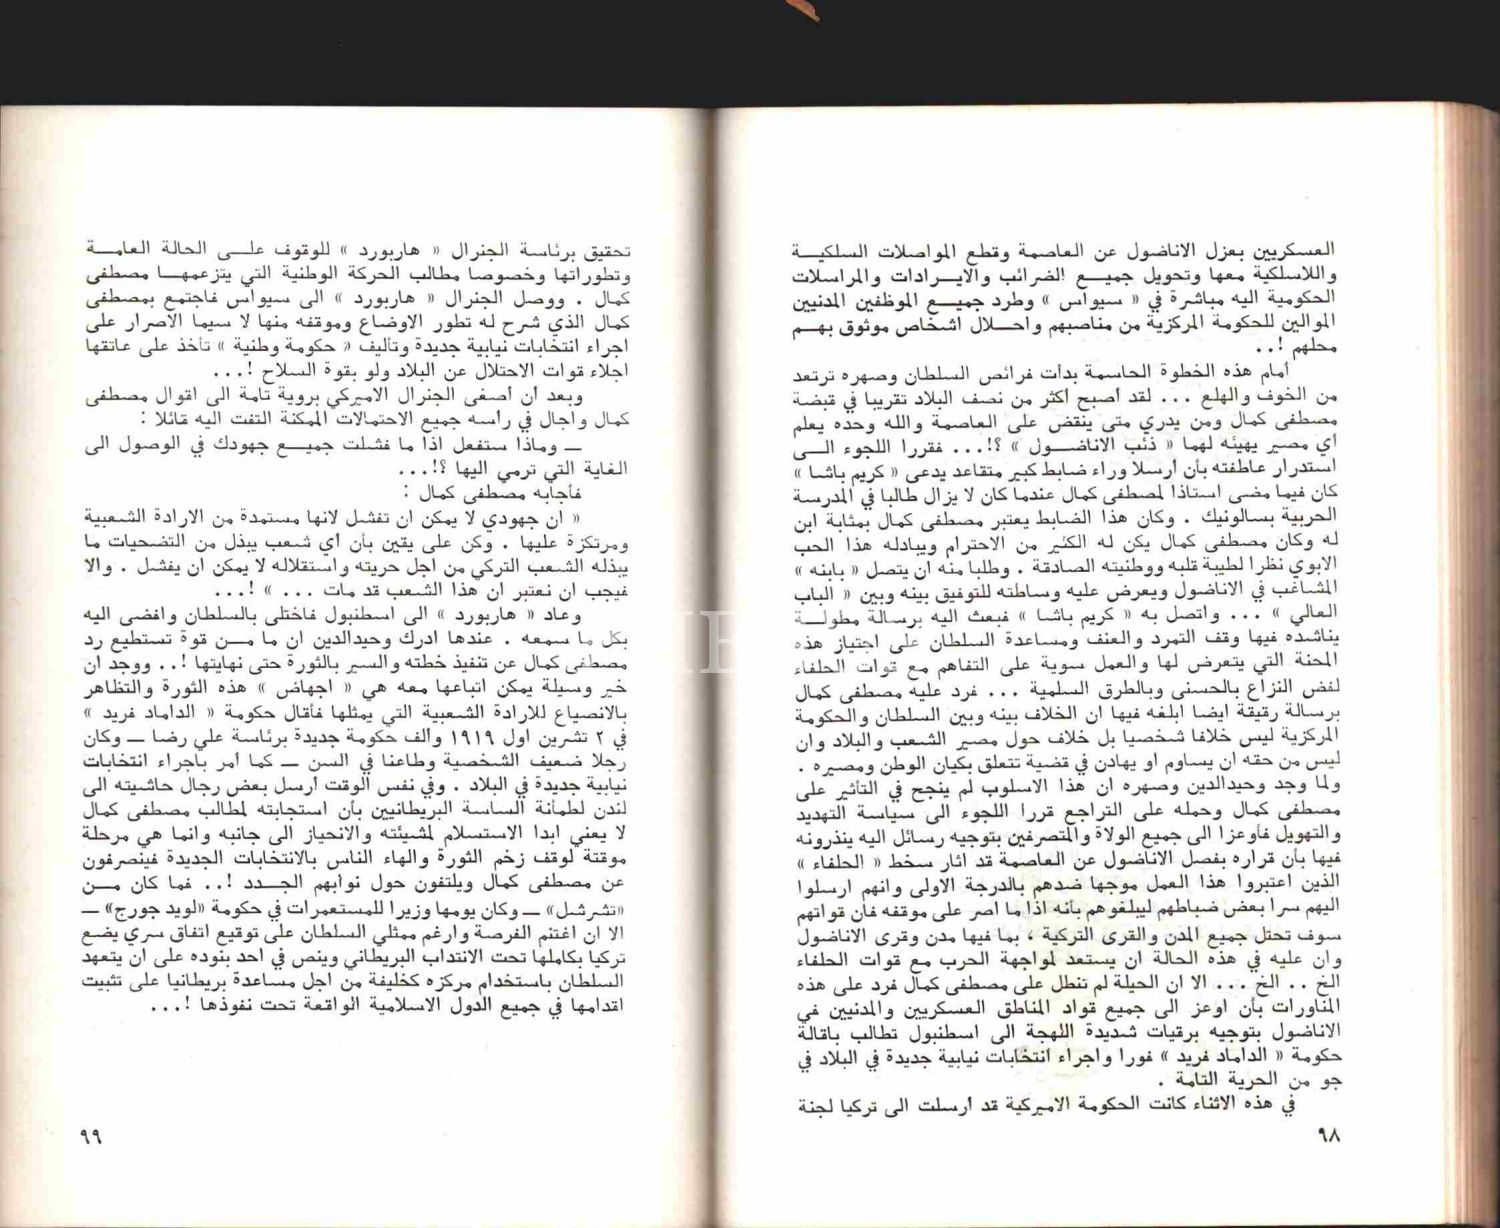 العسكريين بعزل الاناضول عن العاصمة وقطع المواصلات السلكية
واللاسلكية معها وتحويل جميع الضرائب والايرادات والمراسلات
الحكومية اليه مباشرة في « سيواس » وطرد جميع الموظفين المدنيين
الموالين للحكومة المركزية من مناصبهم واحلال اشخاص موثوق بهم
محلهم !..
أمام هذه الخطوة الحاسمة بدأت فرائص السلطان وصهره ترتعد
من الخوف والهلع ... لقد أصبح أكثر من نصف البلاد تقريبا في قبضة
مصطفى كمال ومن يدري متى ينقض على العاصمة والله وحده يعلم
أي مصير يهيئه لهما « ذئب الاناضول » ؟!... فقررا اللجوء الى
استدرار عاطفته بأن أرسلا وراء ضابط كبير متقاعد يدعى « كريم باشا »
كان فيما مضى استاذا لمصطفى كمال عندما كان لا يزال طالبا في المدرسة
الحربية بسالونيك . وكان هذا الضابط يعتبر مصطفى كمال بمثابة ابن
له وكان مصطفى كمال يكن له الكثير من الاحترام ويبادله هذا الحب
الابوي نظرا لطيبة قلبه ووطنيته الصادقة . وطلبا منه ان يتصل « بابنه »
المشاغب في الاناضول ويعرض عليه وساطته للتوفيق بينه وبين « الباب
العالي » ... واتصل به « كريم باشا » فبعث اليه برسالة مطولة
يناشده فيها وقف التمرد والعنف ومساعدة السلطان على اجتياز هذه
المحنة التي يتعرض لها والعمل سوية على التفاهم مع قوات الحلفاء
لفض النزاع بالحسنى وبالطرق السلمية ... فرد عليه مصطفى كمال
برسالة رقيقة ايضا ابلغه فيها ان الخلاف بينه وبين السلطان والحكومة
المركزية ليس خلافا شخصيا بل خلاف حول مصير الشعب والبلاد وان
ليس من حقه ان يساوم او يهادن في قضية تتعلق بكيان الوطن ومصيره .
ولما وجد وحيدالدين وصهره ان هذا الاسلوب لم ينجح في التأثير على
مصطفى كمال وحمله على التراجع قررا اللجوء الى سياسة التهديد
والتهويل فأوعزا الى جميع الولاة والمتصرفين بتوجيه رسائل اليه ينذرونه
فيها بأن قراره بفصل الاناضول عن العاصمة قد اثار سخط « الحلفاء »
الذين اعتبروا هذا العمل موجها ضدهم بالدرجة الاولى وانهم ارسلوا
اليهم سرا بعض ضباطهم ليبلغوهم بأنه اذا ما اصر على موقفه فأن قواتهم
سوف تحتل جميع المدن والقرى التركية ، بما فيها مدن وقرى الاناضول
وان عليه في هذه الحالة ان يستعد لمواجهة الحرب مع قوات الحلفاء
الخ .. الخ ... الا ان الحيلة لم تنطل على مصطفى كمال فرد على هذه
المناورات بأن اوعز الى جميع قواد المناطق العسكريين والمدنيين في
الاناضول بتوجيه برقيات شديدة اللهجة الى اسطنبول تطالب باقالة
حكومة « الداماد فريد » فورا واجراء انتخابات نيابية جديدة في البلاد في
جو من الحرية التامة .
في هذه الاثناء كانت الحكومة الاميركية قد أرسلت الى تركيا لجنة
٩٨
تحقيق برئاسة الجنرال « هاربورد » للوقوف على الحالة العامة
وتطوراتها وخصوصا مطالب الحركة الوطنية التي يتزعمها مصطفى
كمال . ووصل الجنرال « هاربورد » الى سيواس فاجتمع بمصطفى
كمال الذي شرح له تطور الاوضاع وموقفه منها لا سيما الاصرار على
اجراء انتخابات نيابية جديدة وتأليف « حكومة وطنية » تأخذ على عاتقها
اجلاء قوات الاحتلال عن البلاد ولو بقوة السلاح !...
وبعد أن أصغى الجنرال الاميركي بروية تامة الى اقوال مصطفى
كمال واجال في رأسه جميع الاحتمالات الممكنة التفت اليه قائلا :
ــ وماذا ستفعل اذا ما فشلت جميع جهودك في الوصول الى
الغاية التي ترمي اليها ؟!...
فأجابه مصطفى كمال :
« ان جهودي لا يمكن ان تفشل لانها مستمدة من الارادة الشعبية
ومرتكزة عليها . وكن على يقين بأن أي شعب يبذل من التضحيات ما
يبذله الشعب التركي من اجل حريته واستقلاله لا يمكن ان يفشل . والا
فيجب ان نعتبر ان هذا الشعب قد مات ... » !...
وعاد « هاربورد » الى اسطنبول فاختلى بالسلطان وافضى اليه
بكل ما سمعه . عندها ادرك وحيدالدين ان ما من قوة تستطيع رد
مصطفى كمال عن تنفيذ خطته والسير بالثورة حتى نهايتها !.. ووجد ان
خير وسيلة يمكن اتباعها معه هي « اجهاض » هذه الثورة والتظاهر
بالانصياع للارادة الشعبية التي يمثلها فأقال حكومة « الداماد فريد »
في ٢ تشرين اول ١٩١٩ وألف حكومة جديدة برئاسة علي رضا ــ وكان
رجلا ضعيف الشخصية وطاعنا في السن ــ كما أمر بأجراء انتخابات
نيابية جديدة في البلاد . وفي نفس الوقت أرسل بعض رجال حاشيته الى
لندن لطمأنة الساسة البريطانيين بأن استجابته لمطالب مصطفى كمال
لا يعني ابدا الاستسلام لمشيئته والانحياز الى جانبه وانما هي مرحلة
موقتة لوقف زخم الثورة والهاء الناس بالانتخابات الجديدة فينصرفون
عن مصطفى كمال ويلتفون حول نوابهم الجدد !.. فما كان من
«تشرشل» ــ وكان يومها وزيرا للمستعمرات في حكومة «لويد جورج» ــ
الا ان اغتنم الفرصة وارغم ممثلي السلطان على توقيع اتفاق سري يضع
تركيا بكاملها تحت الانتداب البريطاني وينص في احد بنوده على ان يتعهد
السلطان باستخدام مركزه كخليفة من اجل مساعدة بريطانيا على تثبيت
اقدامها في جميع الدول الاسلامية الواقعة تحت نفوذها !...
٩٩